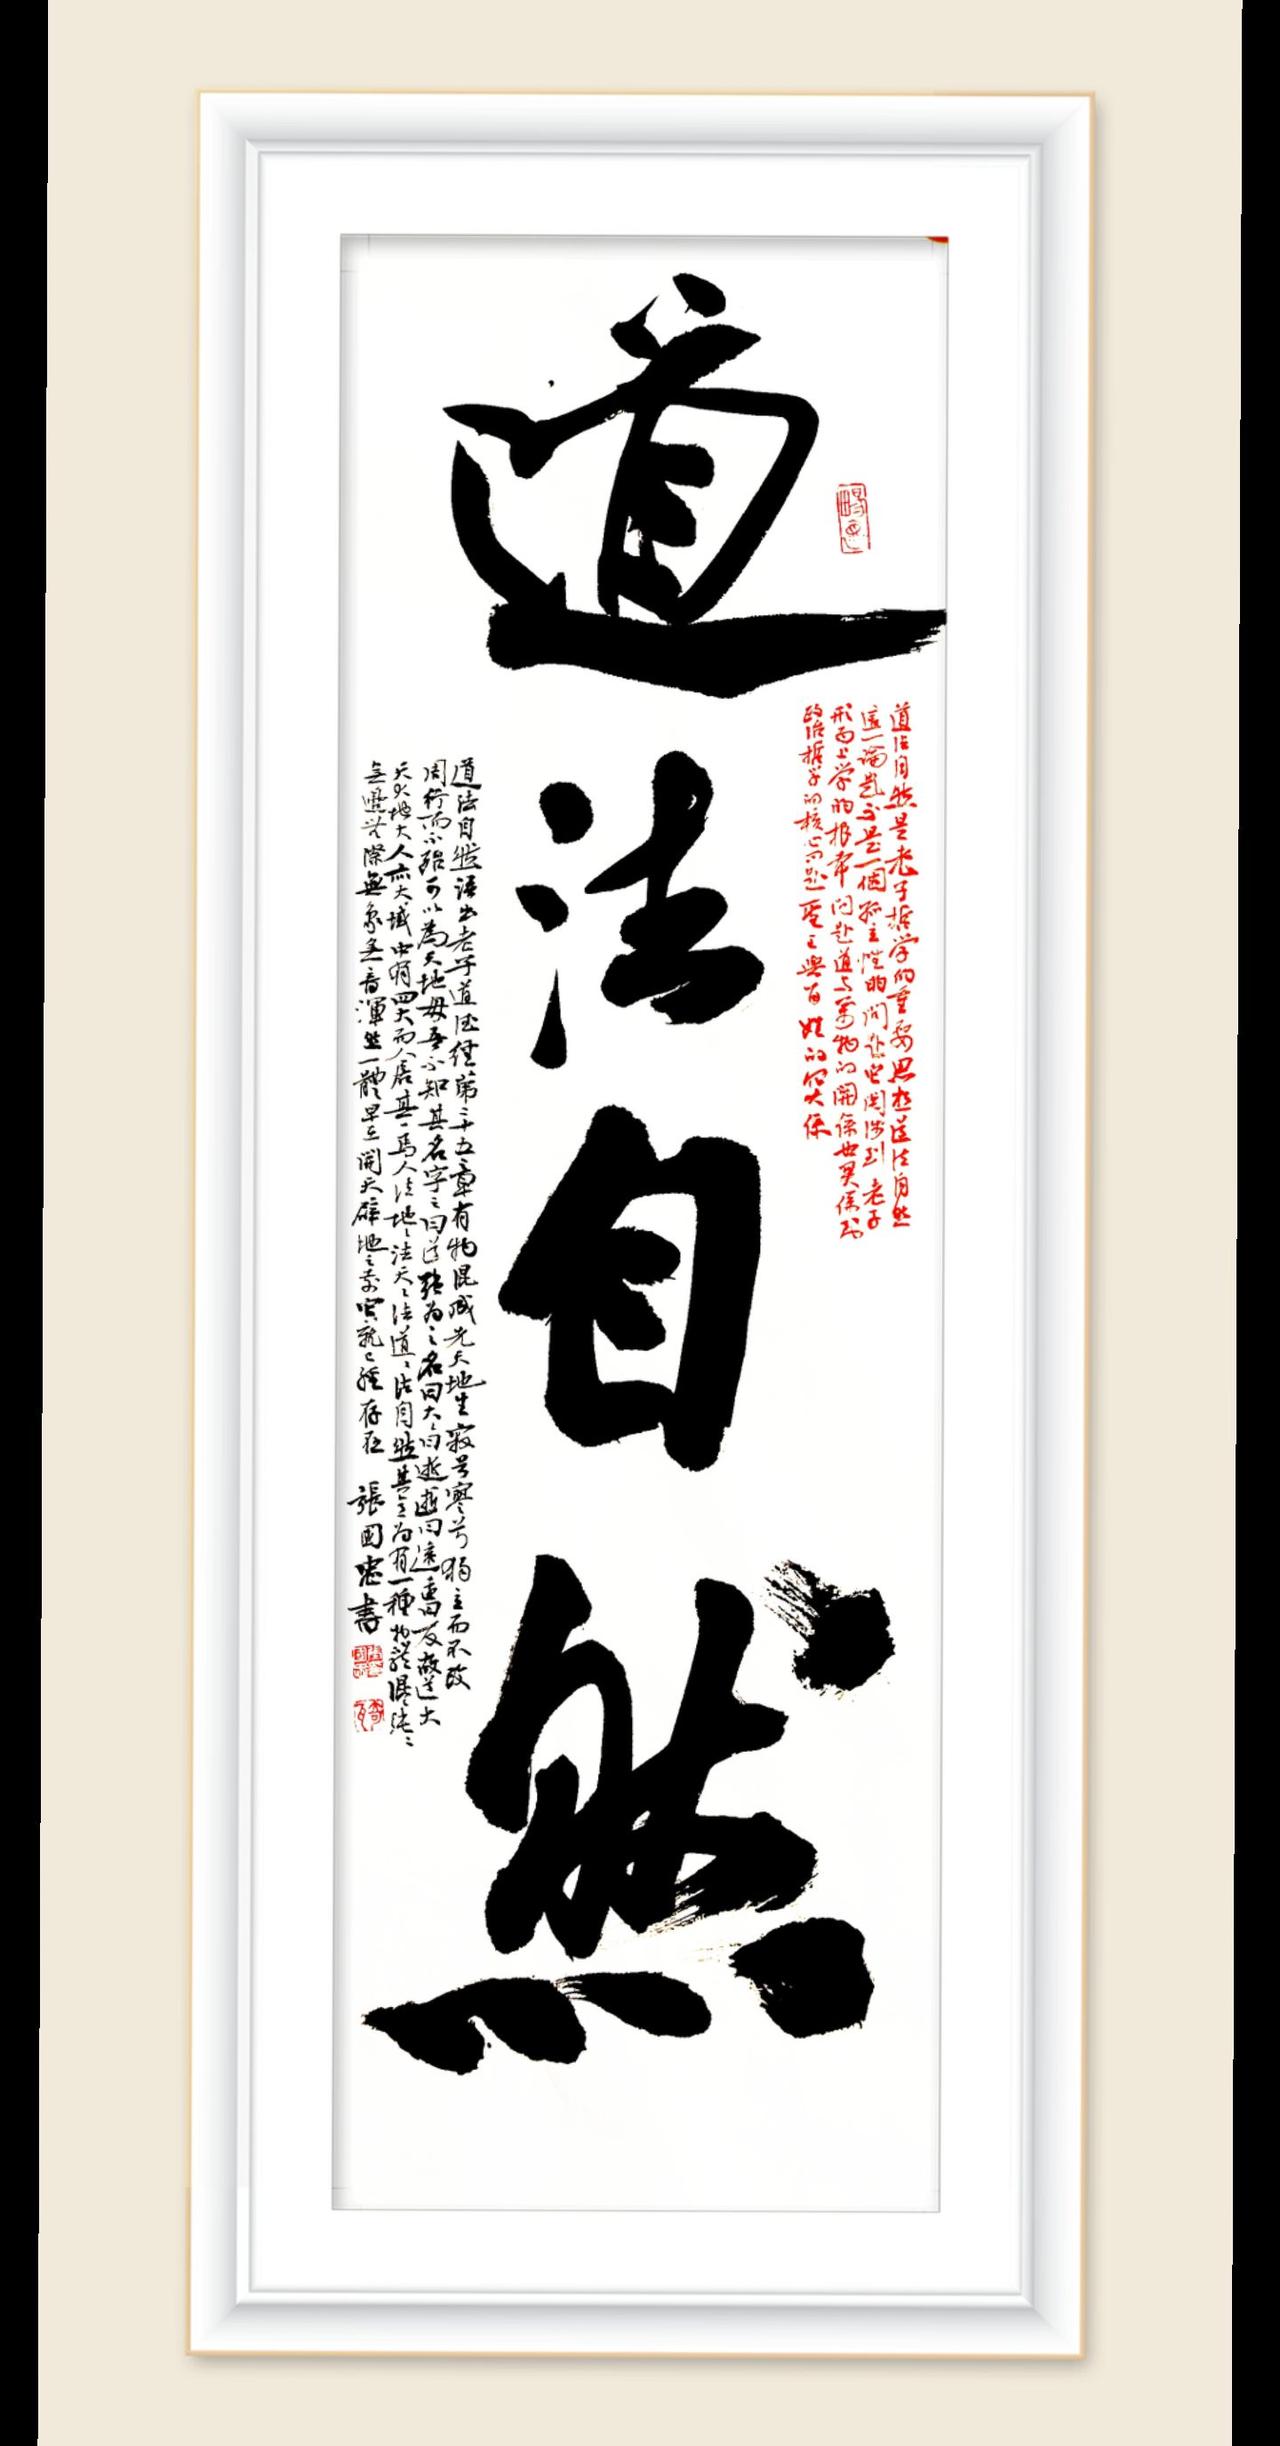 道法自然
道法自然是老子哲学的重要思想道法自然
這一論断不是一個孤立性的问题它関涉到老子
形而上学的根本问题道与萬物的関係也関係到
政治哲学的核心问题聖王與百姓的関係
道法自然語出老子道德経第二十五章有物混成先天地生寂兮寥兮獨立而不改
周行而不殆可以為天地母吾不知其名字之曰道強為之名曰大大曰逝逝曰遠遠曰反故道大
天大地大人亦大域中有四大而人居其一焉人法地地法天天法道道法自然其意為有一種物體混沌
無際無象無音渾然一體早在開天辟地之前它就已經存在
張国忠書